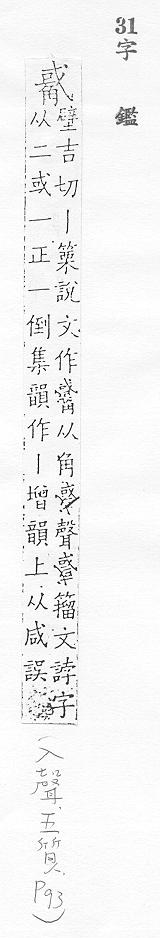 31字 鑑
壁吉切丨篥說文作从角聲籀文誖字
从二或一正一倒集韻作丨增韻上从咸誤
(入聲.五質.P93)